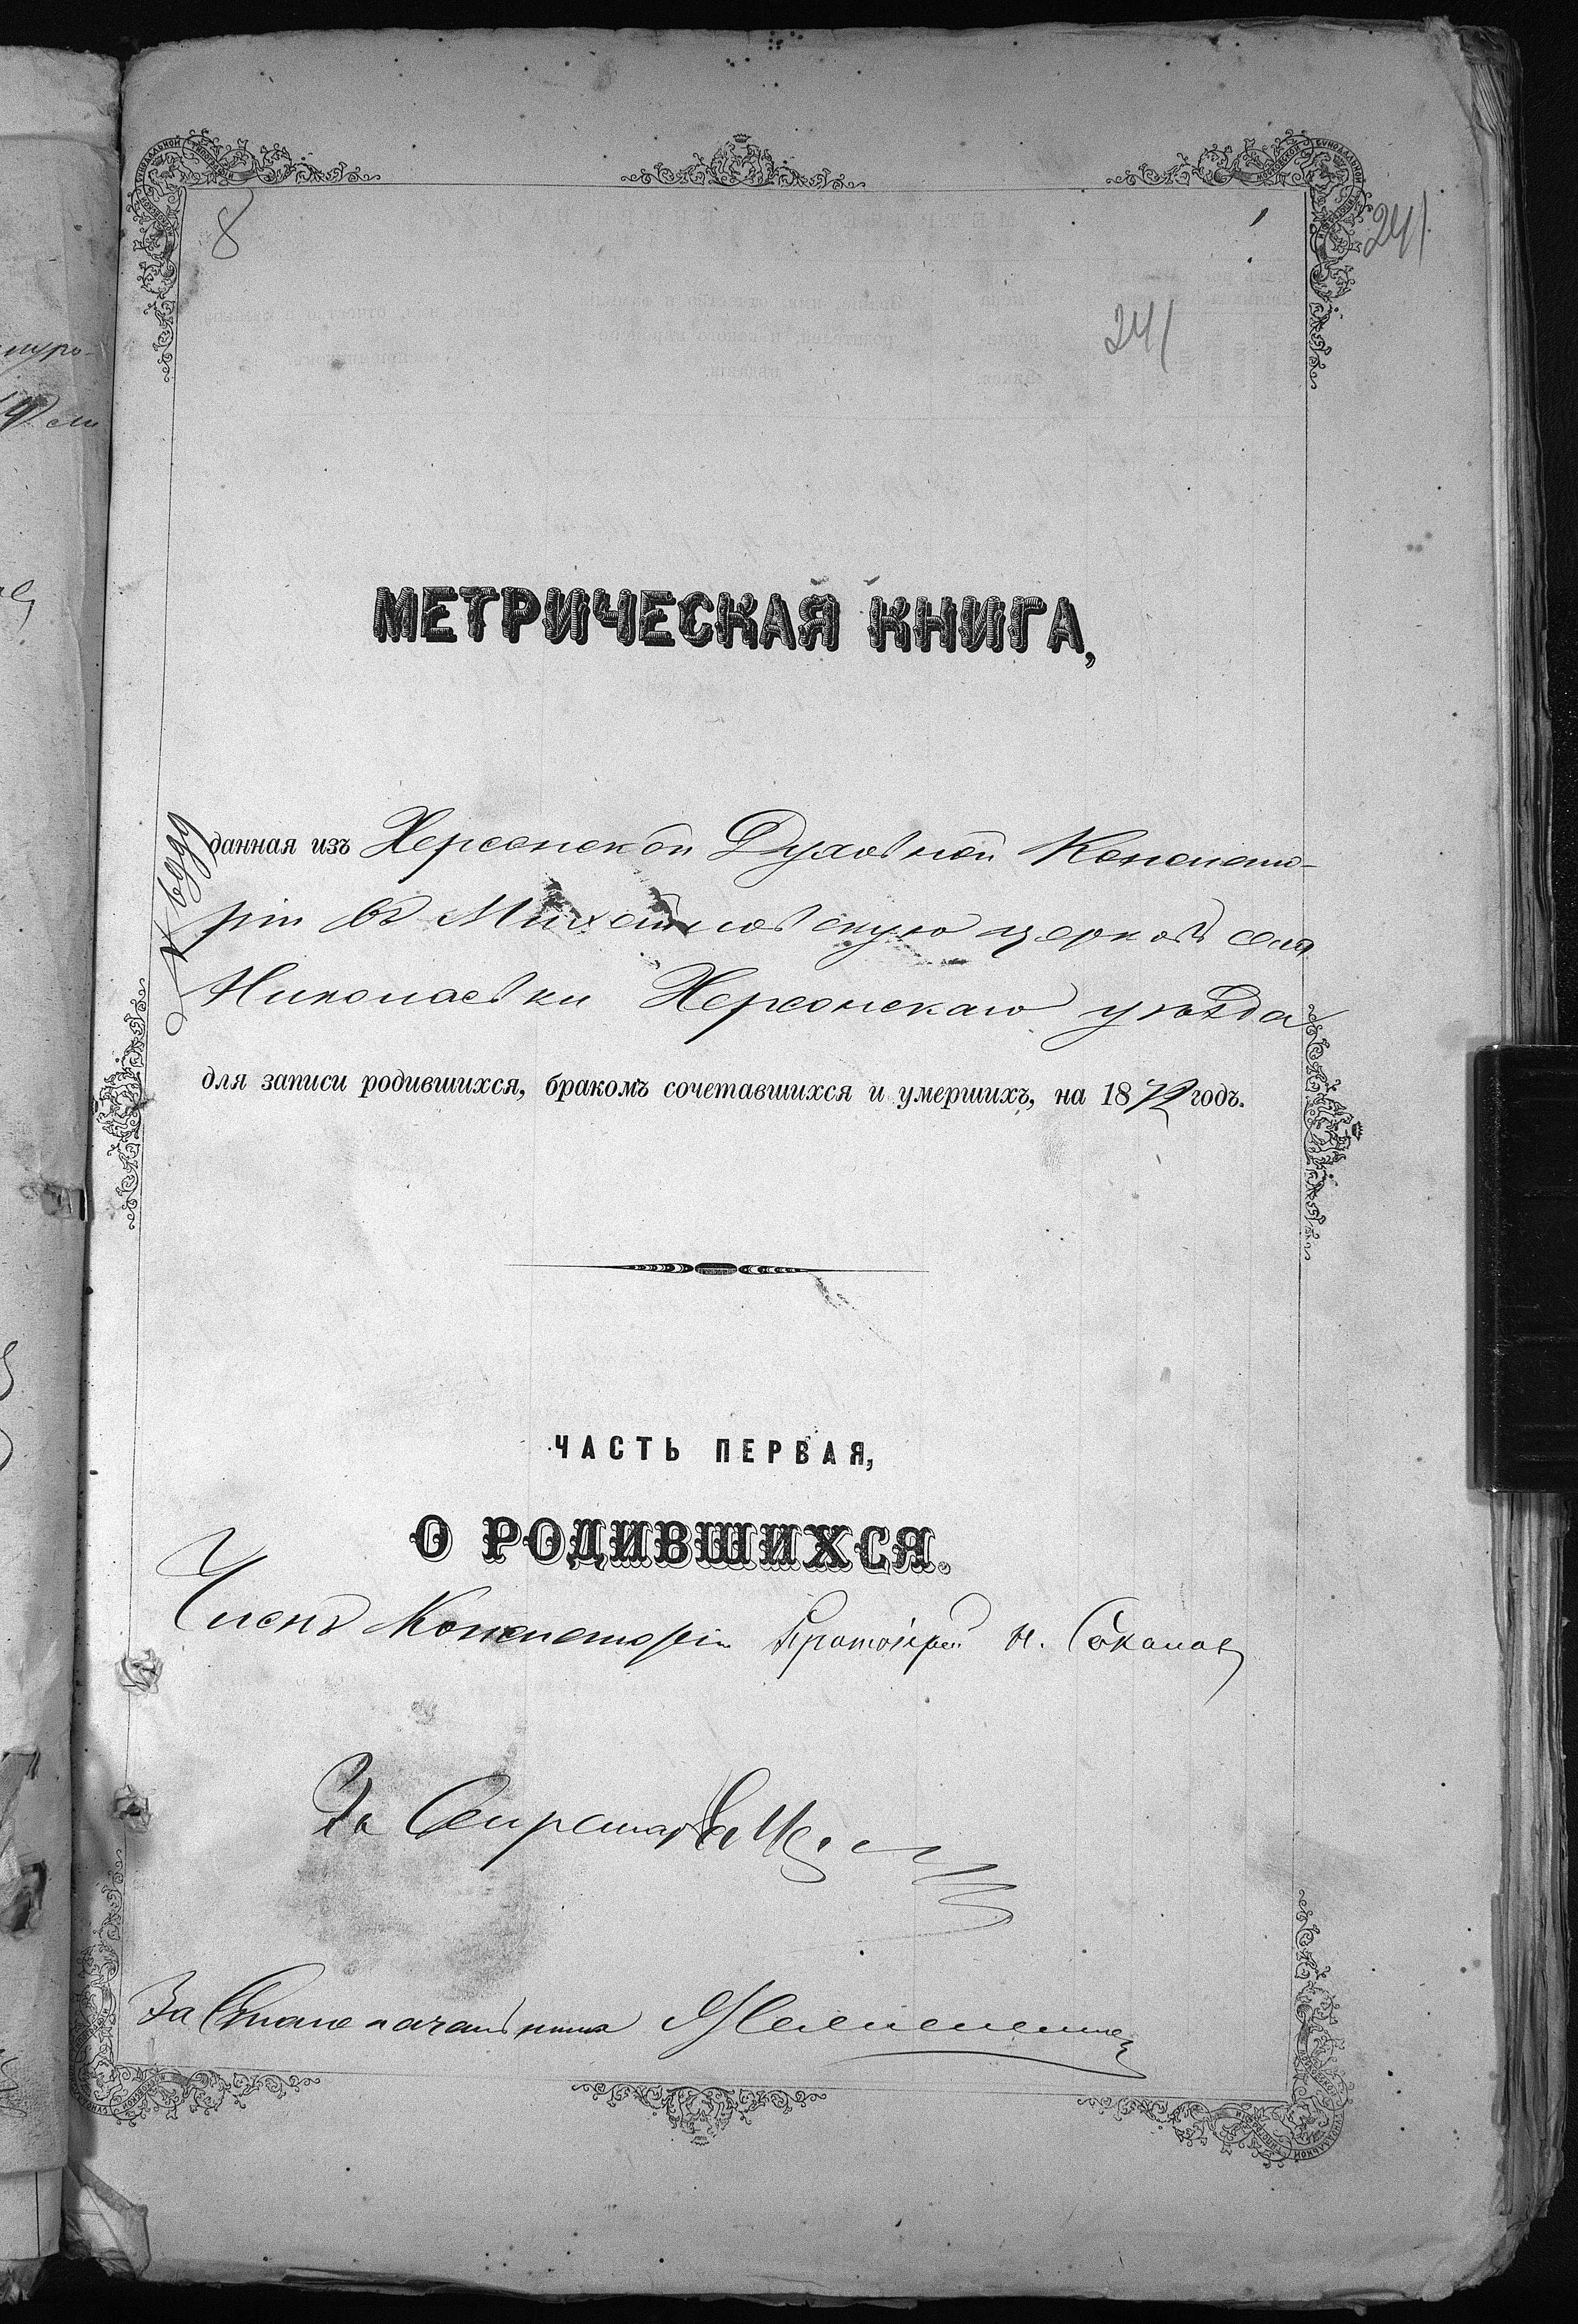 8
241
241
МЕТРИЧЕСКАЯ КНИГА,
данная изъ Херсонской Духовной Консисто-
ріи въ Михайловскую церковь села
Николаевки Херсонскаго уѣзда
для записи родившихся, бракомъ сочетавшихся и умершихъ, на 1872 годъ.
ЧАСТЬ ПЕРВАЯ,
О РОДИВШИХСЯ.
Членъ Консисторіи Протоіерей Н. Соколов
За Секретаря
За Столоначальника